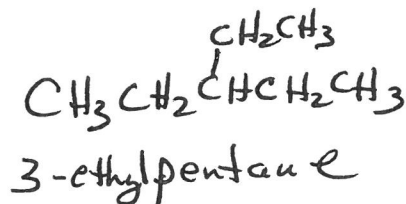 CH2CH3
CH3CH2CHCH2CH3
3-ethylpentane